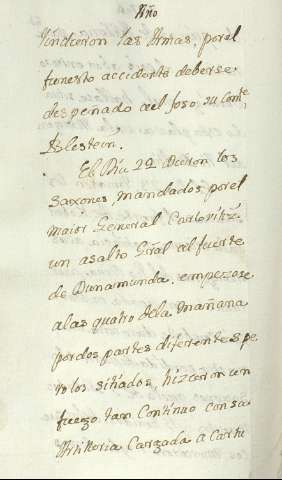 Año
rindieron las Armas, por el
funesto accidente deberse
despeñado a el foso su Comte,
Alestein.
El Dia 22 dieron los
Saxones, mandados por el
Maior General Carlovitz
un asalto Gral al fuerte
de Dunamunda. empezose
a las quatro de la Mañana
por dos partes diferentes pe
ro los sitiados, hizieron un
fuego tam Continuo con su
Artilleria Cargada a Cartu